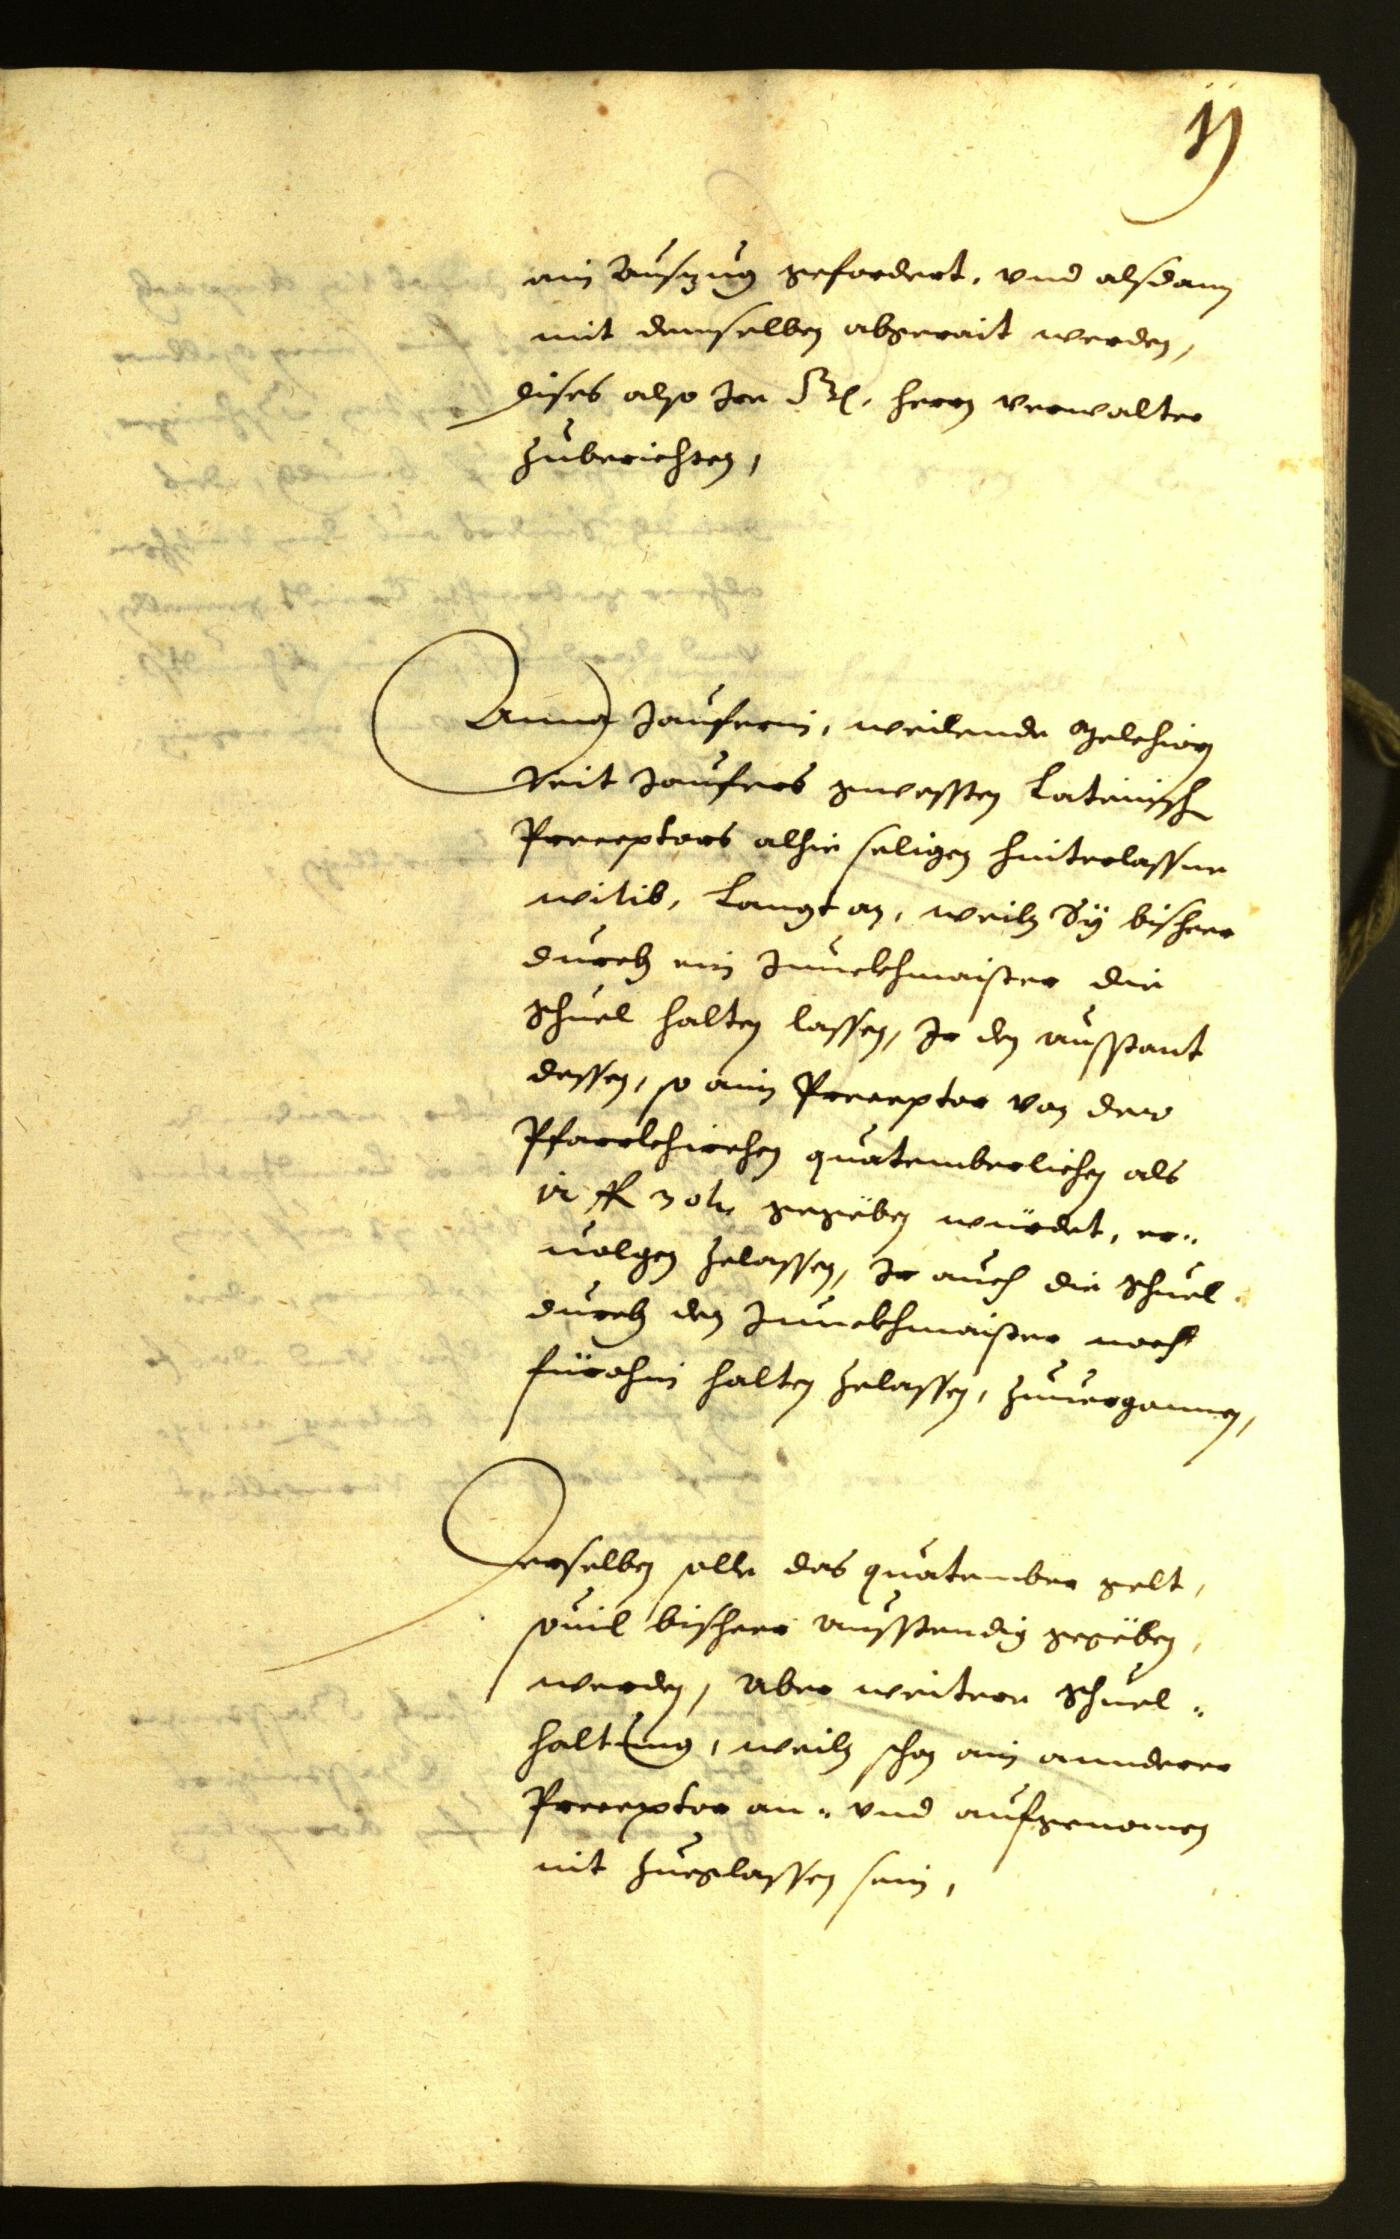 11
ain Auszug gefordert, vnd alsdann
mit demselben abgerait werden,
dises also Jre herrn verwalter
zuberichten,
Anna Jauferin, weilende Melchiorn
Veit Jaufers gewessten Lateinisch
Preceptors alhie seligen hinterlassne
witib, Langt an, weiln Sÿ bisheer
durch ein Junckhmaister die
Schuel halten lassen, Jr den ausstant
dessen, so ain Preceptor von der
Pfarrkhirchen quatemberlichen als
gegëben würdet, er-
uolgen zelassen, Jr auch die Schuel
durch den Junckhmaister noch
fürohin halten zelassen, zuuergonnen,
Derselben solle das quatember gelt,
souil bisheer ausstendig gegëben
werden, Aber weitere Schuel-
haltung, weiln schon ain annderer
Preceptor an- vnd aufgenomen
nit zuegelassen sein,